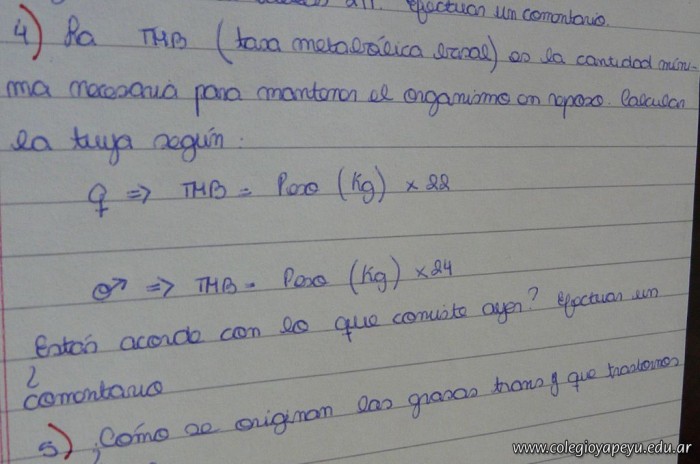 all. efectuar un comentario.
4) La TMB (tasa metabólica basal) es la cantidad míni-
ma necesaria para mantener el organismo en reposo. Calcular
la tuya según:
♀ => TMB = Peso (Kg) x 22
♂ => TMB = Peso (Kg) x 24
Estás acorde con lo que comiste ayer? efectuar un
¿
comentario
5) ¿Cómo se originan las grasas trans y que trastornos
www.colegioyapeyu.edu.ar